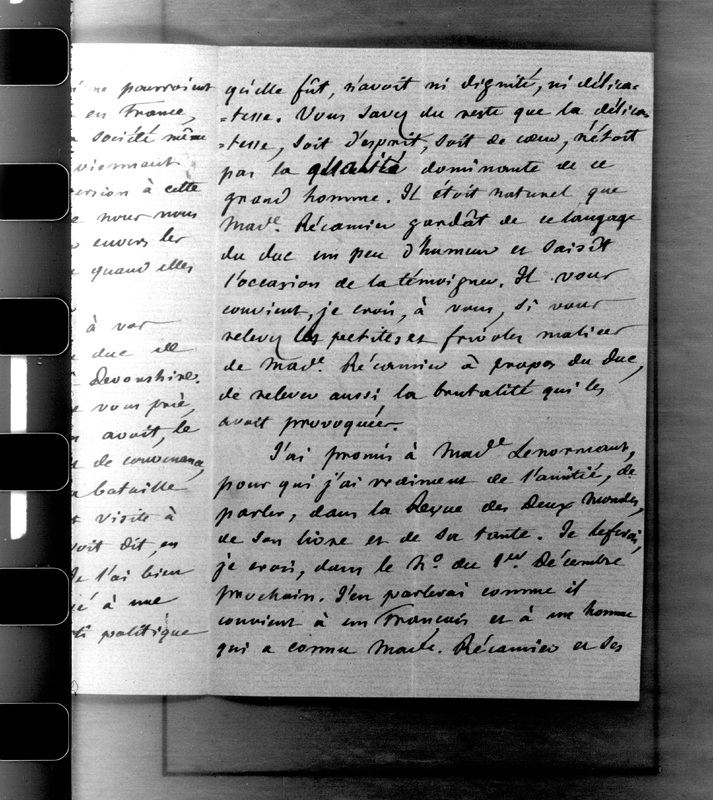 ne pourroient
en France,
société même
viennent
ersion à cette
nour nous
envers les
quand elles
à voir
duc
Devonshire.
vous prie,
avoit, le
de convenance,
bataille
visite à
voit dit, en
Je l'ai bien
à une
politique
qu'elle fût, n'avoit ni dignité, ni délica=
=tesse. Vous savez du reste que la délica=
=tesse, soit d'esprit, soit de cœur, n'étoit
pas la qualité dominante de ce
grand homme. Il étoit naturel que
Made. Récamier gardât de ce langage
du duc un peu d'humeur et saisît
l'occasion de la témoigner. Il vous
convient, je crois, à vous, si vous
relevez les petites et frivoles malices
de Made. Récamier à propos du duc,
de relever aussi la brutalité qui les
avoit provoquées.
J'ai promis à Made Lenormant,
pour qui j'ai vraiment de l'amitié, de
parler, dans la Revue des deux mondes,
de son livre et de sa tante. Je le ferai,
je crois, dans le No. du 1er. Décembre
prochain. J'en parlerai comme il
convient à un François et à un homme
qui a connu Made. Récamier et ses